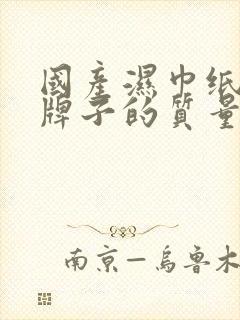 國產濕巾纸
牌子的質量
南京—烏鲁木